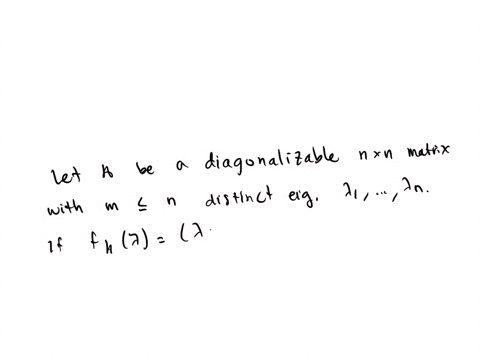 Let A be a diagonalizable n×n matrix
with m ≤ n distinct eig. λ₁, ..., λₙ.
If f_A(λ) = (λ